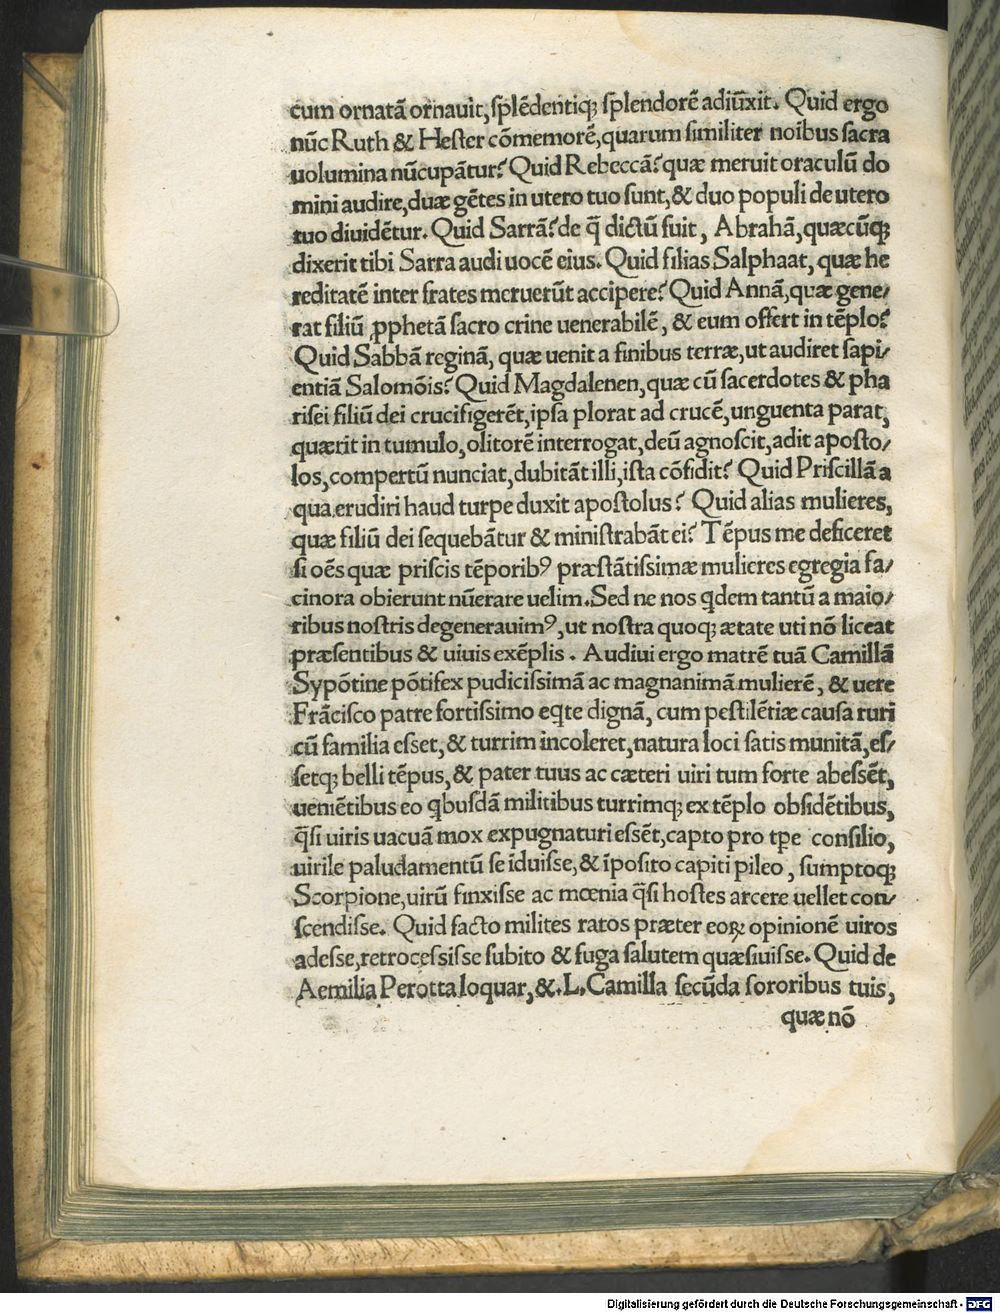 cum ornatã ornauit,ſplẽdentiqꝫ ſplendorẽ adiũxit. Quid ergo
nũc Ruth & Heſter cõmemorẽ,quarum ſimiliter noĩbus ſacra
uolumina nũcupãtur? Quid Rebeccã? quæ meruit oraculũ do
mini audire,duæ gẽtes in utero tuo ſunt,& duo populi de utero
tuo diuidẽtur. Quid Sarrã? de q̃ dictũ fuit, Abrahã,quæcũqꝫ
dixerit tibi Sarra audi uocẽ eius. Quid filias Salphaat, quæ he
reditatẽ inter frates meruerũt accipere? Quid Annã,quæ gene/
rat filiũ ꝓphetã ſacro crine uenerabilẽ, & eum offert in tẽplo?
Quid Sabbã reginã, quæ uenit a finibus terræ,ut audiret ſapi/
entiã Salomõis? Quid Magdalenen,quæ cũ ſacerdotes & pha
riſei filiũ dei crucifigerẽt,ipſa plorat ad crucẽ,unguenta parat,
quærit in tumulo,olitorẽ interrogat,deũ agnoſcit,adit apoſto/
los,compertũ nunciat,dubitãt illi,iſta cõfidit? Quid Priſcillã a
qua erudiri haud turpe duxit apoſtolus? Quid alias mulieres,
quæ filiũ dei ſequebãtur & miniſtrabãt ei? Tẽpus me deficeret
ſi oẽs quæ priſcis tẽporibꝰ præſtãtiſſimæ mulieres egregia fa/
cinora obierunt nũerare uelim.Sed ne nos qͥdem tantũ a maio/
ribus noſtris degenerauimꝰ,ut noſtra quoqꝫ ætate uti nõ liceat
præſentibus & uiuis exẽplis. Audiui ergo matrẽ tuã Camillã
Sypõtine põtifex pudiciſſimã ac magnanimã mulierẽ, & uere
Frãciſco patre fortiſſimo eqͥte dignã, cum peſtilẽtiæ cauſa ruri
cũ familia eſſet,& turrim incoleret,natura loci ſatis munitã,eſ/
ſetqꝫ belli tẽpus,& pater tuus ac cæteri uiri tum forte abeſſẽt,
ueniẽtibus eo qͥbuſdã militibus turrimqꝫ ex tẽplo obſidẽtibus,
q̃ſi uiris uacuã mox expugnaturi eſſẽt,capto pro tp̃e conſilio,
uirile paludamentũ ſe iduiſſe,& ĩpoſito capiti pileo, ſumptoqꝫ
Scorpione,uirũ finxiſſe ac mœnia q̃ſi hoſtes arcere uellet con/
ſcendiſſe. Quid facto milites ratos præter eoꝝ opinionẽ uiros
adeſſe,retroceſſiſſe ſubito & fuga ſalutem quæſiuiſſe. Quid de
Aemilia Perotta loquar,&.L.Camilla ſecũda ſororibus tuis,
quæ nõ
Digitalisierung gefördert durch die Deutsche Forschungsgemeinschaft - DFG